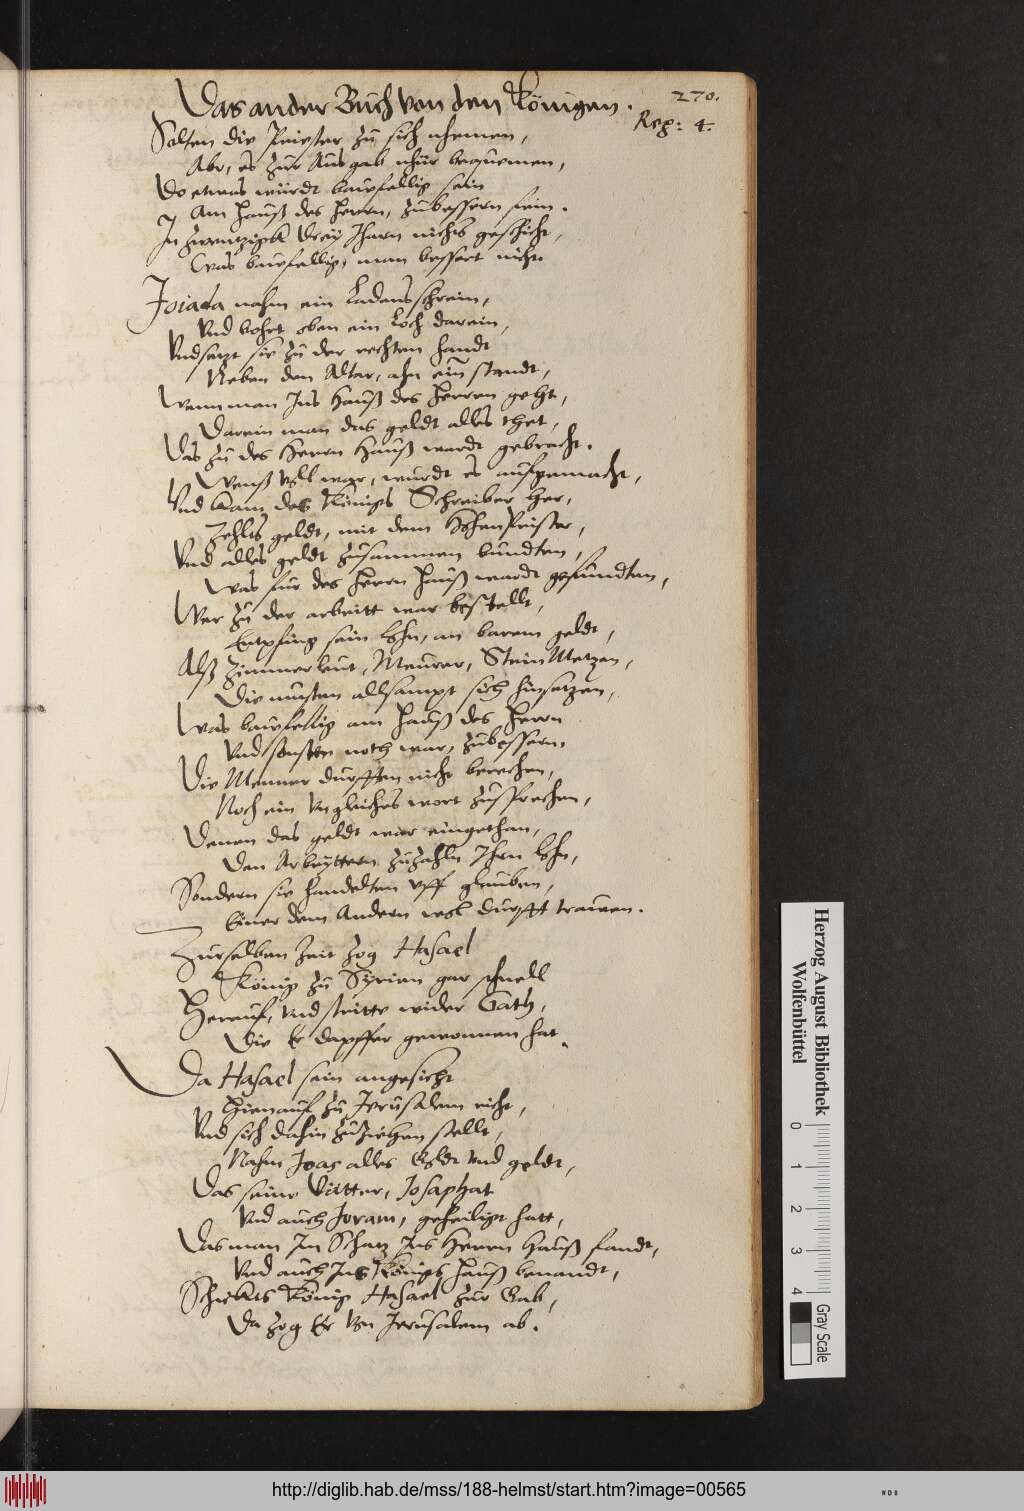 270.
Das ander Buch von den Königen.
Reg: 4.
Solten die Priester zu sich nhemen,
Abr, es zur Ausgab nhur bequemen,
Do etwas würdt baufellig sein
Am Hauß des Herrn, zubessern fein.
In zwentzigk Drey Iharn nichts geschicht,
Was baufellig, man bessert nicht.
Joiada nahm ein Ladenschrein,
Vnd bohrt oben ein Loch darein,
Vnd satzt sie zu der rechten handt
Neben den Altar, ahn ein standt,
Wenn man Ins Hauß des Herren geht,
Darein man das geldt alles thet,
Das zu des Herrn Hauß wardt gebracht.
Wenß voll war, wurdt es aufgemacht,
Vnd kam des Königs Schreiber her,
Zehlts geldt, mit dem HohenPrister,
Vnd alles geldt zusammen bundten,
Was für des Herrn Hauß wardt gefundten,
Wer zu der arbeitt war bestellt,
Entpfing sein lohn, an barem geldt,
Alß Zimmerleut, Meurer, SteinMetzen,
Die musten allsampt sich hinsetzen,
Was baufellig am Hauß des Herrn
Vnd sonsten noth war, zubessern.
Die Menner durfften nicht berechen,
Noch ein Vngleiches wort zusprechen,
Denen das geldt war eingethan,
Den Arbeyttern zuzahln Ihrn lohn,
Sondern sie handelten vff glauben,
Einer dem Andern wol durfft trauen.
Zurselben Zeit zog Hasael
König zu Syrien gar schnell
Herauf, Vnd stritte wider Gath,
Die Er dapffer gewonnen hat.
Da Hasael sein angesicht
Hienauf zu Jerusalem richt,
Vnd sich dahin zuziehen stellt,
Nahm Joas alles Goldt vnd geldt,
Das seine Vätter, Josaphat
Vnd auch Joram, geheiligt hatt,
Das man Im Schatz Ins Herrn Hauß fandt,
Vnd auch Ins Königs Hauß benandt,
Schickts König Hasael zur Gab,
Da zog Er von Jerusalem ab.
Herzog August Bibliothek
Wolfenbüttel
0 1 2 3 4
Gray Scale
http://diglib.hab.de/mss/188-helmst/start.htm?image=00565
WDB